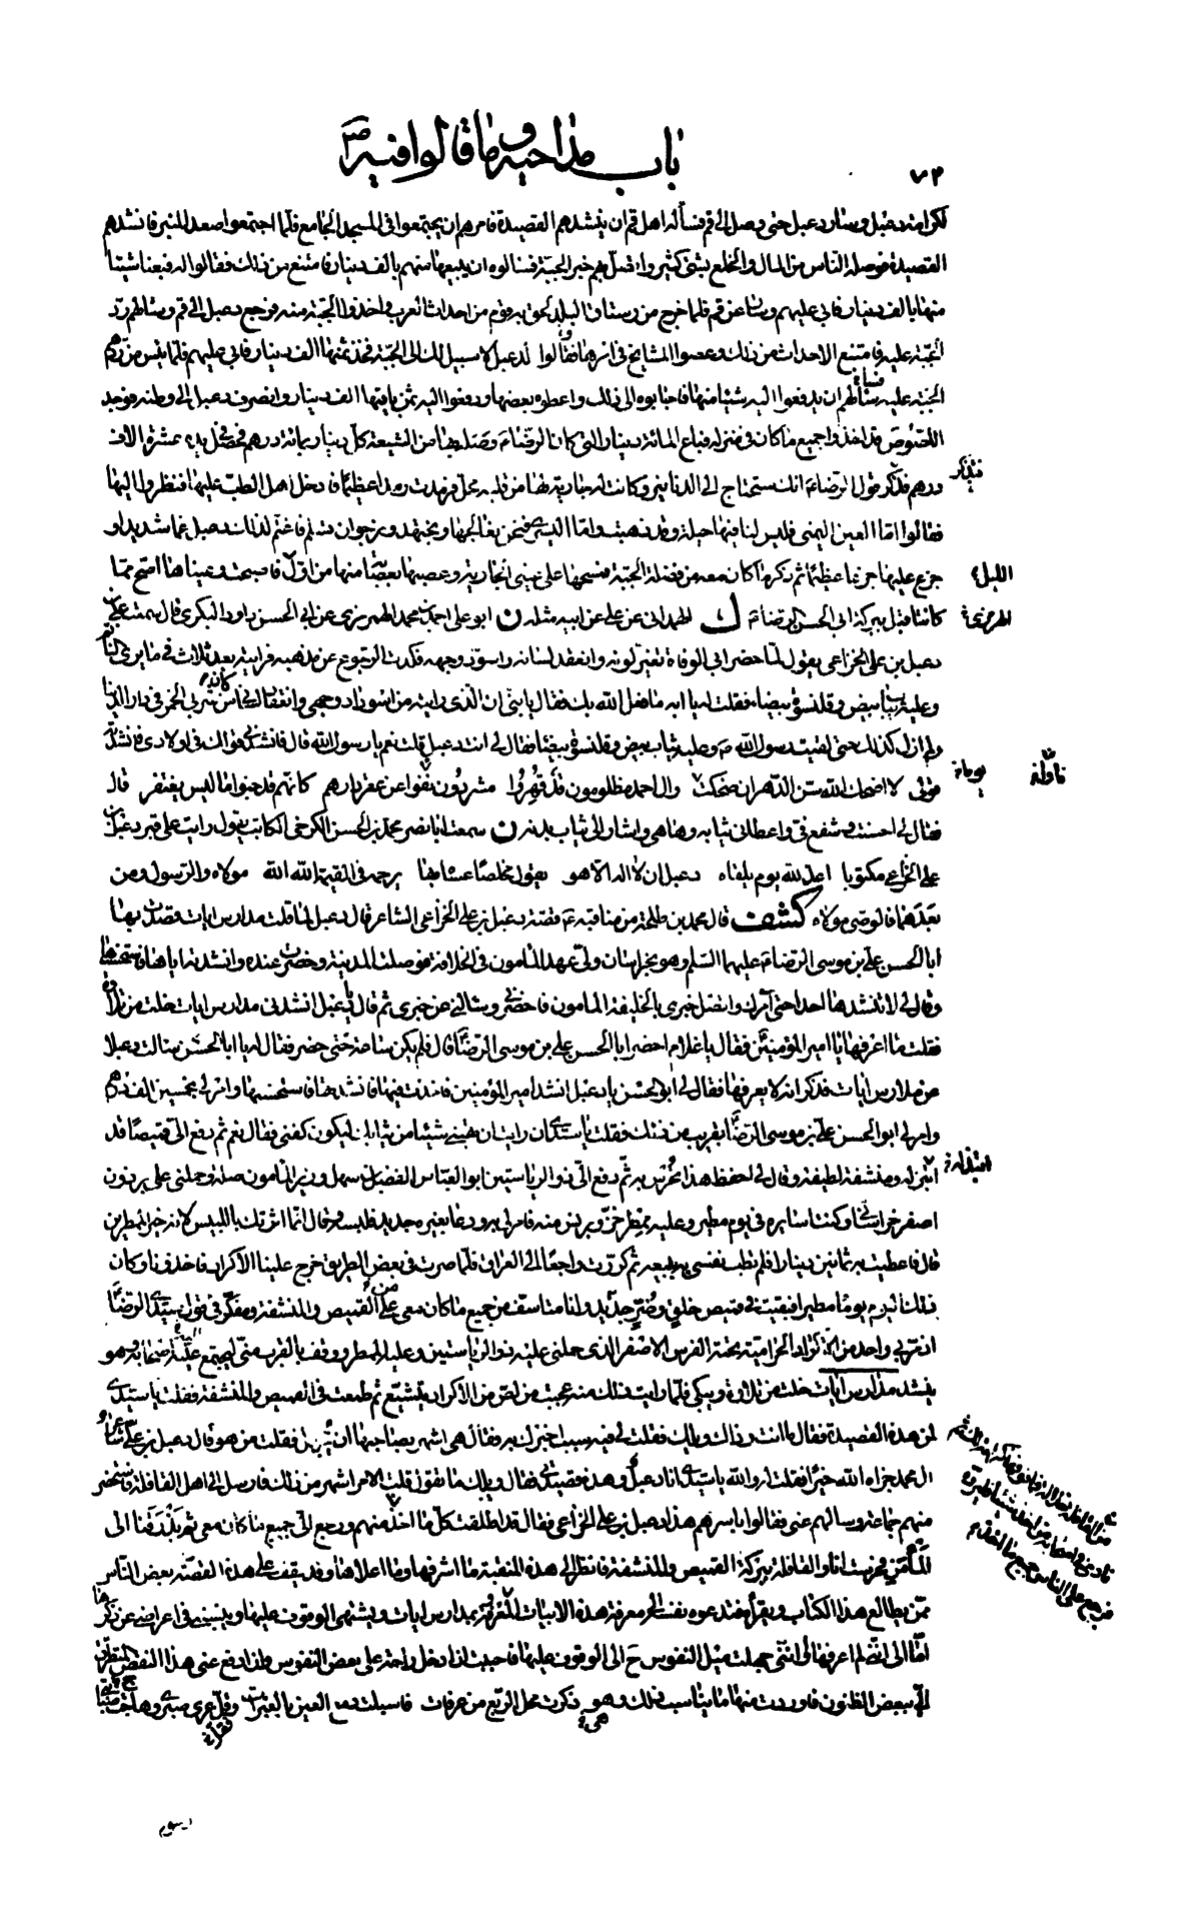 باب مداحيه وما قالوا فيه ص
٧٣
لكرامة دعبل وسار دعبل حتى وصل الى قم فسأله اهل قم ان ينشدهم القصيدة فامرهم ان يجتمعوا في المسجد الجامع فلما اجتمعوا صعد المنبر فانشدهم
القصيدة فوصله الناس من المال والخلع بشئ كثير واتصل بهم خبر الجبة فسالوه ان يبيعها منهم بالف دينار فامتنع من ذلك فقالوا له فبعنا شيئا
منها بالف دينار فابى عليهم وسار عن قم فلما خرج من رستاق البلد لحق به قوم من احداث العرب واخذوا الجبة منه فرجع دعبل الى قم وسالهم رد
الجبة عليه فامتنع الاحداث من ذلك وعصوا المشايخ في امرها وقالوا لدعبل لا سبيل لك الى الجبة فخذ ثمنها الف دينار فابى عليهم فلما يئس من ردهم
الجبة عليه سألهم ان يدفعوا اليه شيئا منها فاجابوه الى ذلك واعطوه بعضها ودفعوا اليه ثمن باقيها الف دينار وانصرف دعبل الى وطنه فوجد
اللصوص قد اخذوا جميع ما كان في منزله فباع المائة دينار التي كان الرضا ع وصله بها من الشيعة كل دينار بمائة درهم فحصل في يده عشرة الاف
درهم فذكر قول الرضا ع انك ستحتاج الى الدنانير وكانت له جارية لها من قلبه محل فرمدت رمدا عظيما فادخل اهل الطب عليها فنظروا اليها
فقالوا اما العين اليمنى فليس لنا فيها حيلة وقد ذهبت واما اليسرى فنحن نعالجها ونجتهد ونرجو ان تسلم فاغتم لذلك دعبل غما شديدا و
جزع عليها جزعا عظيما ثم ذكر ما كان معه من فضلة الجبة فمسحها على عيني الجارية وعصبها بعصابة منها من اول فاصبحت وعيناها اصح مما
الليل
كانتا قبل ببركة ابي الحسن الرضا ع ن الهمداني عن علي عن ابيه مثله ن ابو علي احمد بن محمد الهرمزي عن ابي الحسن داود البكري قال سمعت علي بن
دعبل بن علي الخزاعي يقول لما حضر ابي الوفاة تغير لونه وانعقد لسانه واسود وجهه فكدت الرجوع عن مذهبه فرايته بعد ثلاث فيما يرى النائم
وعليه ثياب بيض وقلنسوة بيضاء فقلت له يا ابه ما فعل الله بك فقال يا بني ان الذي رايته من اسوداد وجهي وانعقاد لساني كان من شربي الخمر في دار الدنيا
ولم ازل كذلك حتى لقيت رسول الله ص وعليه ثياب بيض وقلنسوة بيضاء فقال لي انت دعبل قلت نعم يا رسول الله قال فانشدني قولك في اولادي فانشدته
قولي لا اضحك الله سن الدهر ان ضحكت وال احمد مظلومون قد قهروا مشردون نفوا عن عقر دارهم كانهم قد جنوا ما ليس يغتفر قال
فقال لي احسنت وشفع في واعطاني ثيابه وها هي واشار الى ثياب بدنه ن سمعت ابا نصر محمد بن الحسن الكرخي الكاتب يقول رايت على قبر دعبل بن
علي الخزاعي مكتوبا اعد لله يوم يلقاه دعبل ان لا اله الا هو يقول مخلصا عساه بها يرحمه في القيمة الله الله مولاه والرسول ومن
بعدهما فالوصي مولاه كشف قال محمد بن طلحة من مناقبه ع قصة دعبل بن علي الخزاعي الشاعر قال دعبل لما قلت مدارس ايات وقصدت بها
ابا الحسن علي بن موسى الرضا عليهما السلم وهو بخراسان ولي عهد المامون في الخلافة فوصلت المدينة وحضرت عنده وانشدته اياها فاستحسنها
وقال لي لا تنشدها احدا حتى آمرك واتصل خبري بالخليفة المامون فاحضرني وسالني عن خبري ثم قال لي يا دعبل انشدني مدارس ايات خلت من تلاوة
فقلت ما اعرفها يا امير المؤمنين فقال يا غلام احضر ابا الحسن علي بن موسى الرضا قال فلم يكن ساعة حتى حضر فقال له يا ابا الحسن سالت دعبلا
عن مدارس ايات فذكر انه لا يعرفها فقال لي ابو الحسن يا دعبل انشد امير المؤمنين فاخذت فيها فانشدتها فاستحسنها وامر لي بخمسين الف درهم
وامر لي ابو الحسن علي بن موسى الرضا بقريب من ذلك فقلت يا سيدي ان رايت ان تهبني شيئا من ثيابك ليكون كفني فقال نعم ثم دفع الى قميصا قد
ابتذله ومنشفة لطيفة وقال لي احفظ هذا تحرس به ثم دفع الي ذو الرياستين ابو العباس الفضل بن سهل وزير المامون صلة وحملني على برذون
اصفر خراساني وكنت اسايره في يوم مطير وعليه ممطر خز وبرنس منه فامر لي به ودعا بغيره جديد فلبسه وقال انما اثرتك باللبيس لانه خير الممطرين
قال فاعطيت به ثمانين دينارا فلم تطب نفسي ببيعه ثم كررت راجعا الى العراق فلما صرت في بعض الطريق خرج علينا الاكراد فاخذونا وكان
ذلك اليوم يوما مطيرا فبقيت في قميص خلق وضر جديد وانا متاسف من جميع ما كان معي على القميص والمنشفة ومفكر في قول سيدي الرضا
اذ مر بي واحد من الاكراد الحرامية تحته الفرس الاصفر الذي حملني عليه ذو الرياستين وعليه الممطر ووقف بالقرب مني ليجتمع اليه اصحابه وهو
ينشد مدارس ايات خلت من تلاوة ويبكي فلما رايت ذلك منه عجبت من لص من الاكراد يتشيع ثم طمعت في القميص والمنشفة فقلت يا سيدي
لمن هذه القصيدة فقال ما انت وذاك ويلك فقلت لي فيه سبب اخبرك به فقال هي اشهر بصاحبها ان يجهل فقلت من هو قال دعبل بن علي شاعر
ال محمد جزاه الله خيرا فقلت له والله يا سيدي انا دعبل وهذه قصيدتي فقال ويلك ما تقول قلت الامر اشهر من ذلك فارسل الى اهل القافلة فاستحضر
منهم جماعة وسالهم عني فقالوا باسرهم هذا دعبل بن علي الخزاعي فقال قد اطلقت كل ما اخذ منهم ورجع الي جميع ما كان معي ثم بذرقنا الى
المأمن فحرست انا والقافلة ببركة القميص والمنشفة فانظر الى هذه المنقبة ما اشرفها وما اعلاها وقد يقف على هذه القصة بعض الناس
ممن يطالع هذا الكتاب ويقرأه فتدعوه نفسه الى معرفة هذه الابيات المعروفة بمدارس ايات ويشتهي الوقوف عليها وينسبني في اعراضي عن ذكرها
اما الى انني لم اعرفها او انني جهلت ميل النفوس ح الى الوقوف عليها فاحببت ان ادخل راحة على بعض النفوس وان ادفع عني هذا النقص المتطرق
الي ببعض الظنون فاوردت منها ما يناسب ذلك وهو ذكرت محل الربع من عرفات فاسبلت دمع العين بالعبرات وفل عرى صبري وهاجت صبابتي